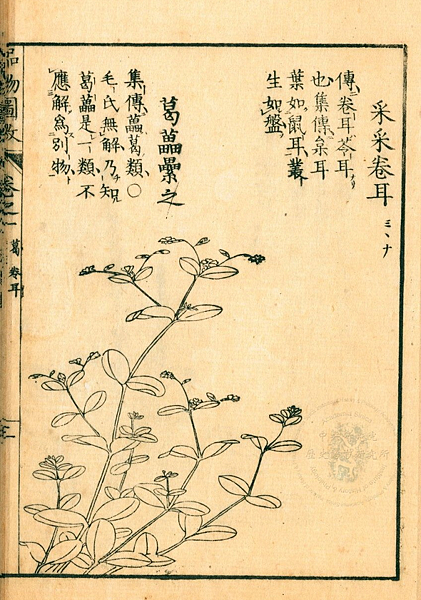 采采卷耳
ミ、ナ
傳卷耳苓耳
也集傳枲耳
葉如鼠耳叢
生如盤
葛藟纍之
集傳藟葛類○
毛氏無解乃知
葛藟是一類不
應解爲別物
品物圖攷
卷之一
葛 卷耳